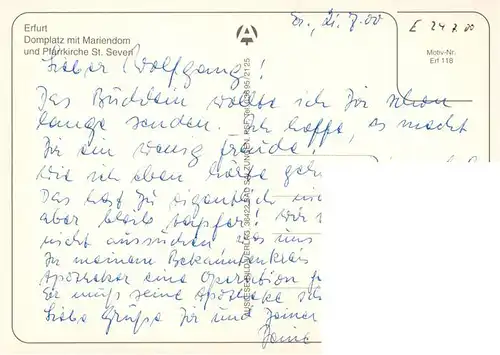 Erfurt
Domplatz mit Mariendom
und Pfarrkirche St. Severi
Motiv-Nr.
Erf 118
E 24.7.00
Er., 21.7.00
Lieber Wolfgang!
Das Büchlein wollte ich Dir schon
lange senden. Ich hoffe, es macht
Dir ein wenig Freude!
Wie ich eben hörte
Das hast Du eigentlich
aber bleib tapfer! Wir
nicht aussuchen, was uns
In meinem Bekanntenkreis
Apotheker eine Operation
Er muß seine Apotheke
Liebe Grüße Dir und Deiner
Deine